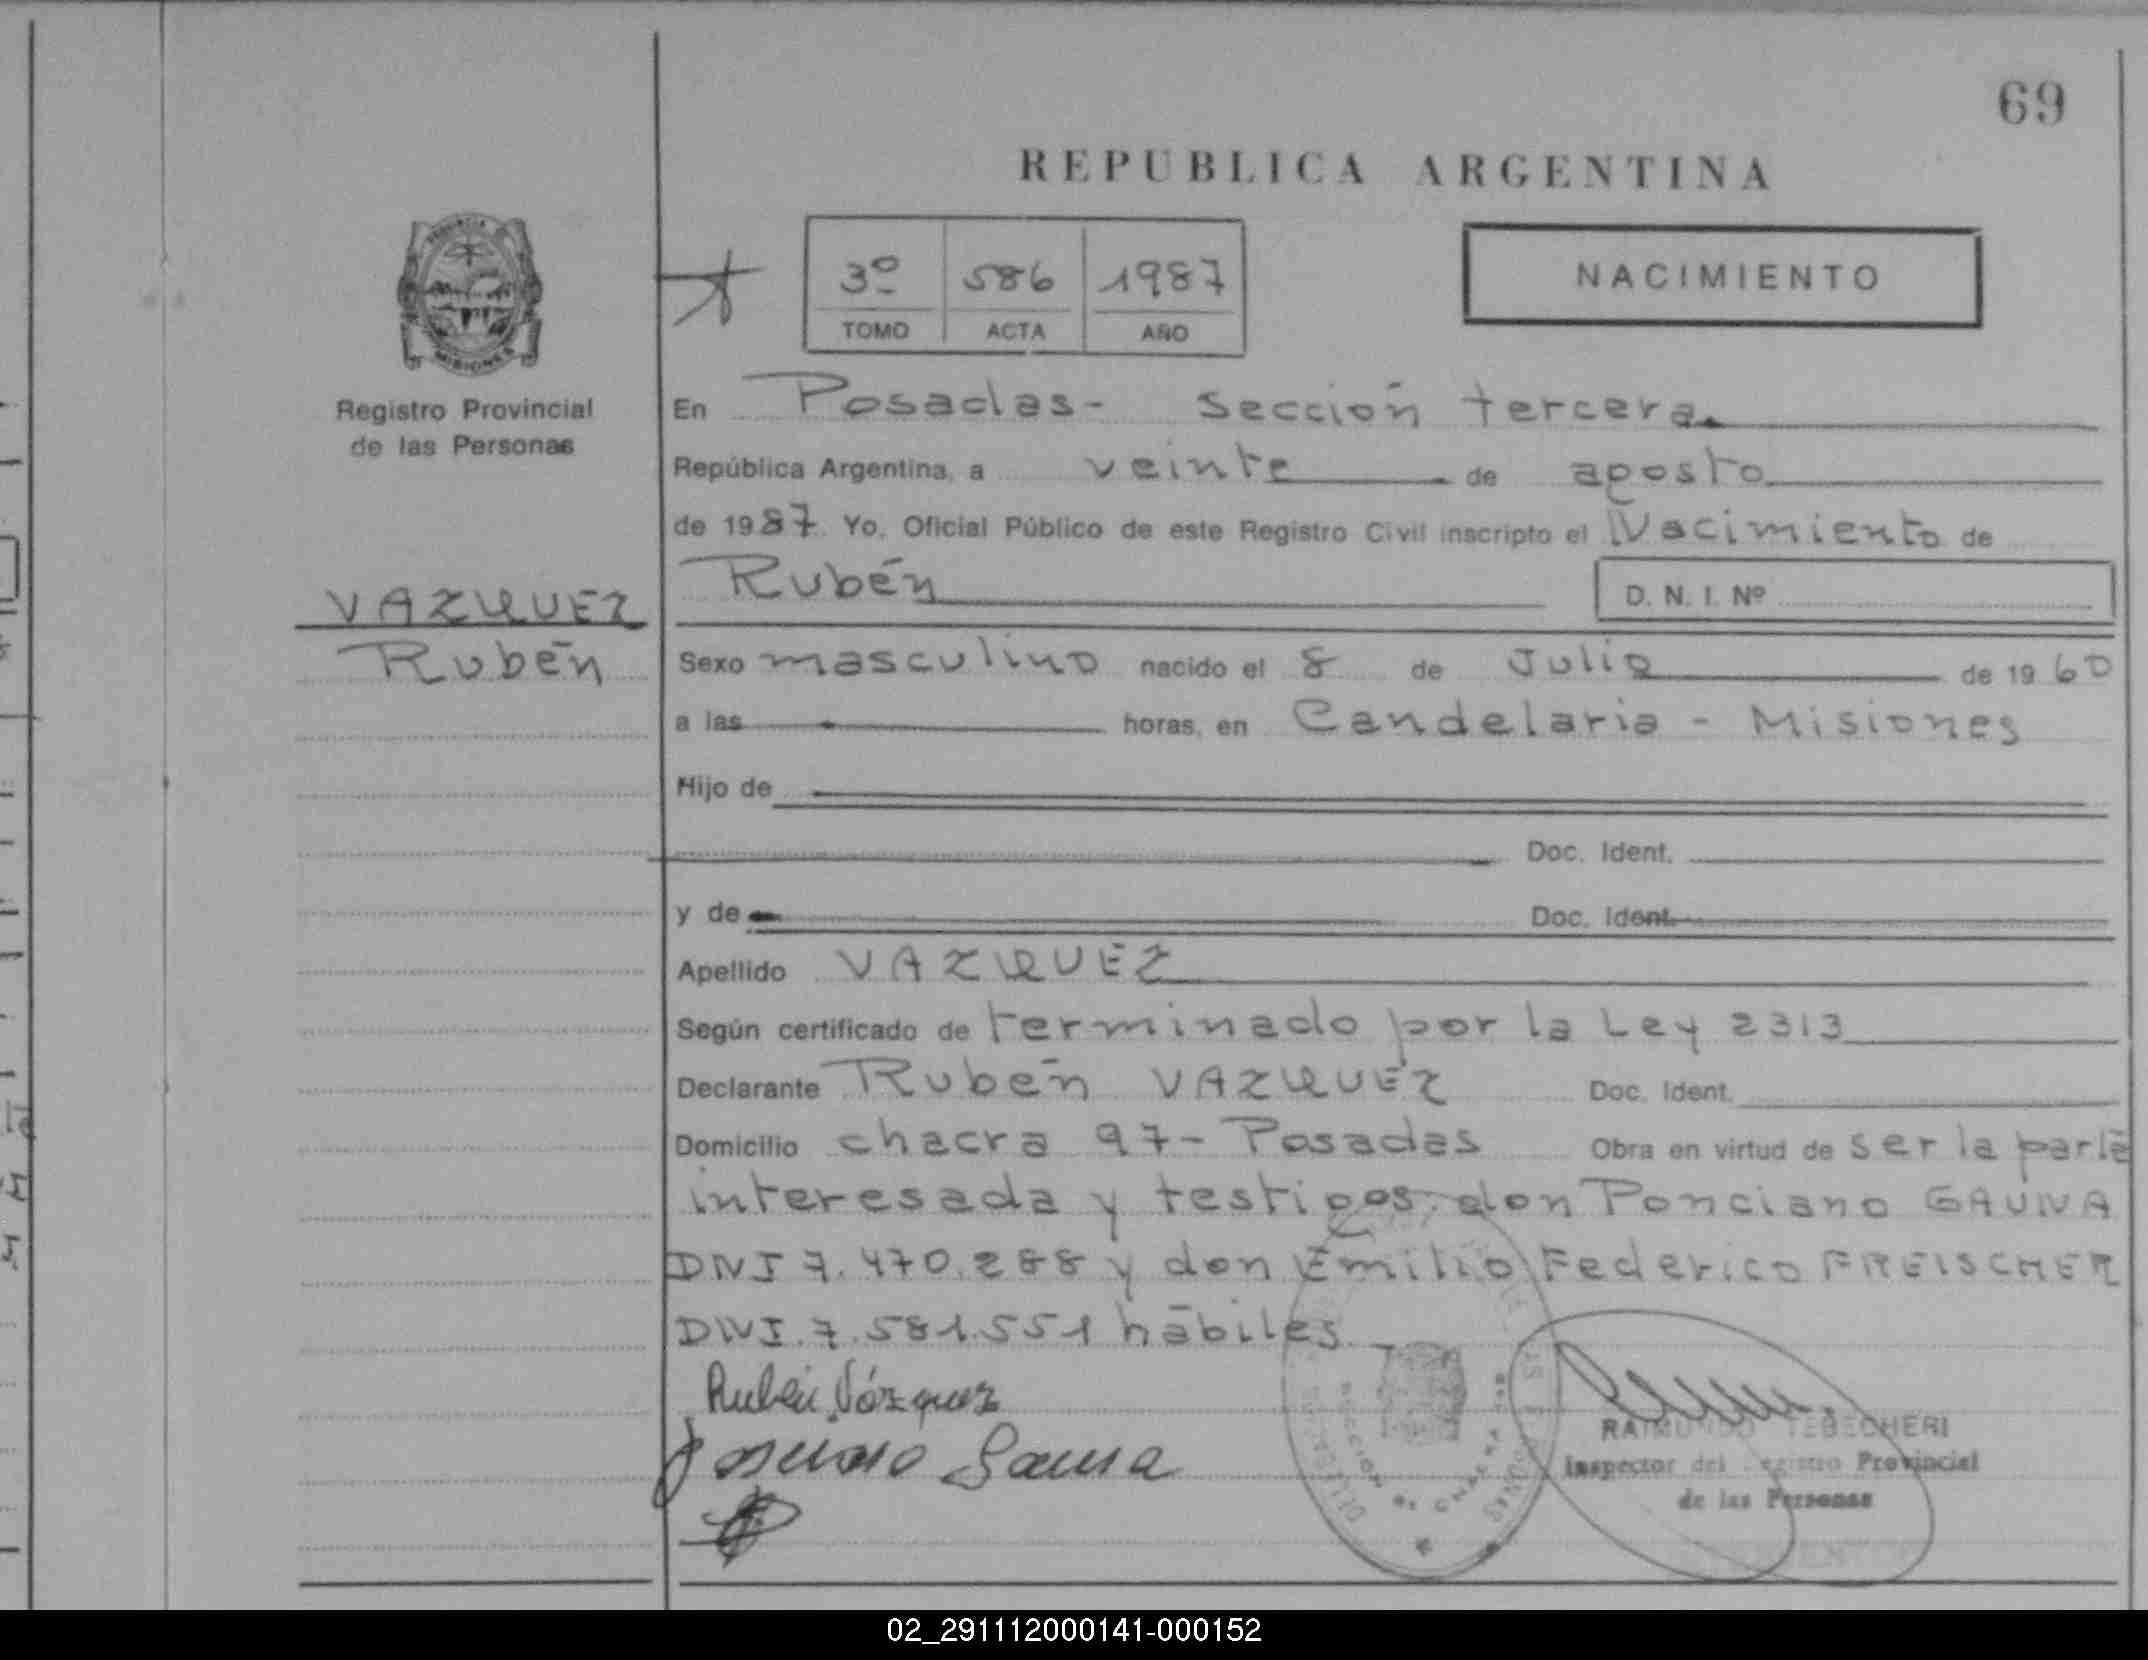 69
REPUBLICA ARGENTINA
3º 586 1987
TOMO ACTA AÑO
NACIMIENTO
PROVINCIA
MISIONES
Registro Provincial
de las Personas
VAZQUEZ
Rubén
En Posadas- sección tercera
República Argentina, a veinte de agosto
de 1987 Yo, Oficial Público de este Registro Civil inscripto el Nacimiento de
Rubén D. N. I. Nº
Sexo masculino nacido el 8 de Julio de 1960
a las horas, en Candelaria - Misiones
Hijo de
Doc. Ident.
y de Doc. Ident.
Apellido VAZQUEZ
Según certificado de terminado por la Ley 2313
Declarante Rubén VAZQUEZ Doc. Ident.
Domicilio chacra 97- Posadas Obra en virtud de ser la parte
interesada y testigos: don Ponciano GAUNA
DNI 7.470.288 y don Emilio Federico FREISCHER
DNI.7.581.551 hábiles
Rubén Vázquez
Ponciano Gauna
RAIMUNDO TEBECHERI
Inspector del Registro Provincial
de las Personas
02_291112000141-000152